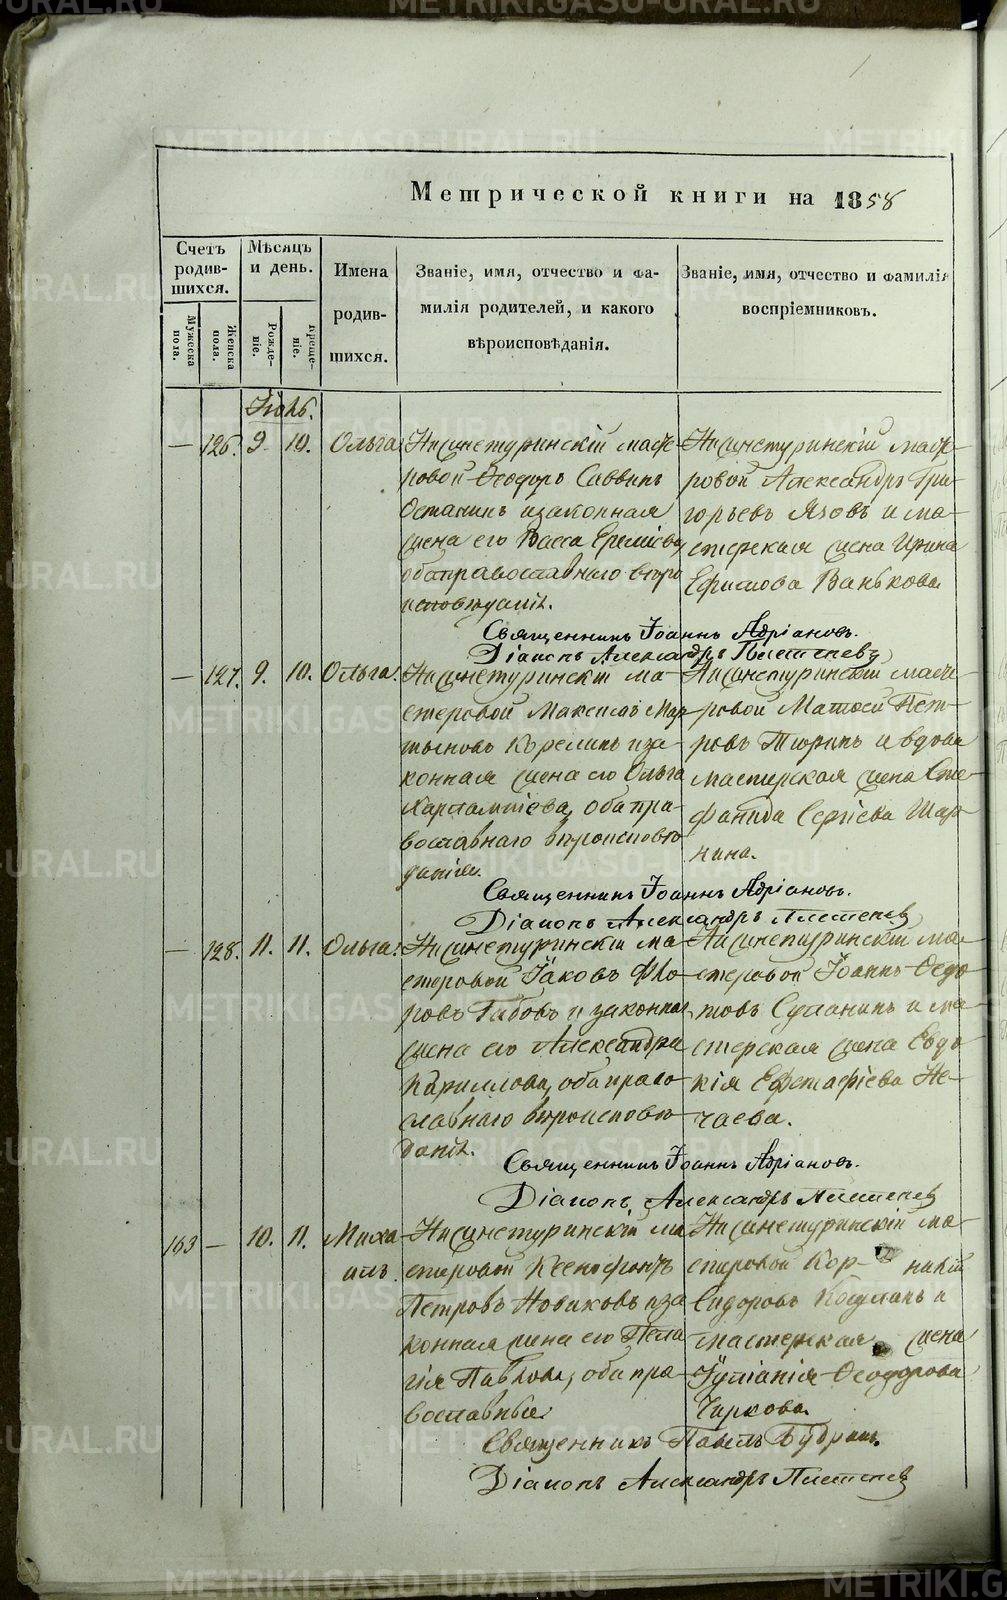 Метрической книги на 1858
Счетъ родив- шихся.
Мѣсяцъ и день.
Имена родив- шихся.
Званіе, имя, отчество и фа- милія родителей, и какого вѣроисповѣданія.
Званіе, имя, отчество и фамилія воспріемниковъ.
Мужеска пола.
Женска пола.
Рожде- ніе.
Креще- ніе.
Іюль.
— 126. 9. 10. Ольга.
Нижнетуринскій масте-
ровой Ѳеодоръ Саввинъ
Останинъ и законная
жена его Васса
оба православнаго вѣро
исповѣданія.
Нижнетуринскій масте-
ровой Александръ Гри-
горьевъ Язовъ и ма-
стерская жена Ирина
Ефимова Ванькова
Священникъ Іоаннъ Адріановъ.
Діаконъ Александръ
— 127. 9. 10. Ольга.
Нижнетуринскій ма-
стеровой Максимъ Мар-
тыновъ Корелинъ и за-
конная жена его Ольга
Харлампіева, оба пра-
вославнаго вѣроисповѣ
данія.
Нижнетуринскій масте-
ровой Матѳей Пет-
ровъ Тюринъ и вдова
мастерская жена Сте-
фанида Сергіева Шар-
нина.
Священникъ Іоаннъ Адріановъ.
Діаконъ Александръ
— 128. 11. 11. Ольга.
Нижнетуринскій ма-
стеровой Іаковъ Фло-
ровъ Габовъ и законная
жена его Александра
Кириллова, оба право-
славнаго вѣроисповѣ-
данія.
Нижнетуринскій ма-
стеровой Іоаннъ Ѳедо
товъ и ма-
стерская жена Евдо
кія Ефстафіева Не-
чаева.
Священникъ Іоаннъ Адріановъ.
Діаконъ Александръ
163 — 10. 11. Миха
илъ.
Нижнетуринскій ма
стеровой Ксенофонтъ
Петровъ Новиковъ и за
конная жена его Пела
гія Павлова, оба пра-
вославные.
Нижнетуринскій ма-
стеровой Кор- нилій
Сидоровъ и
мастерская жена
Іуліанія Ѳеодорова
Чиркова.
Священникъ Павелъ
Діаконъ Александръ
METRIKI.GASO-URAL.RU